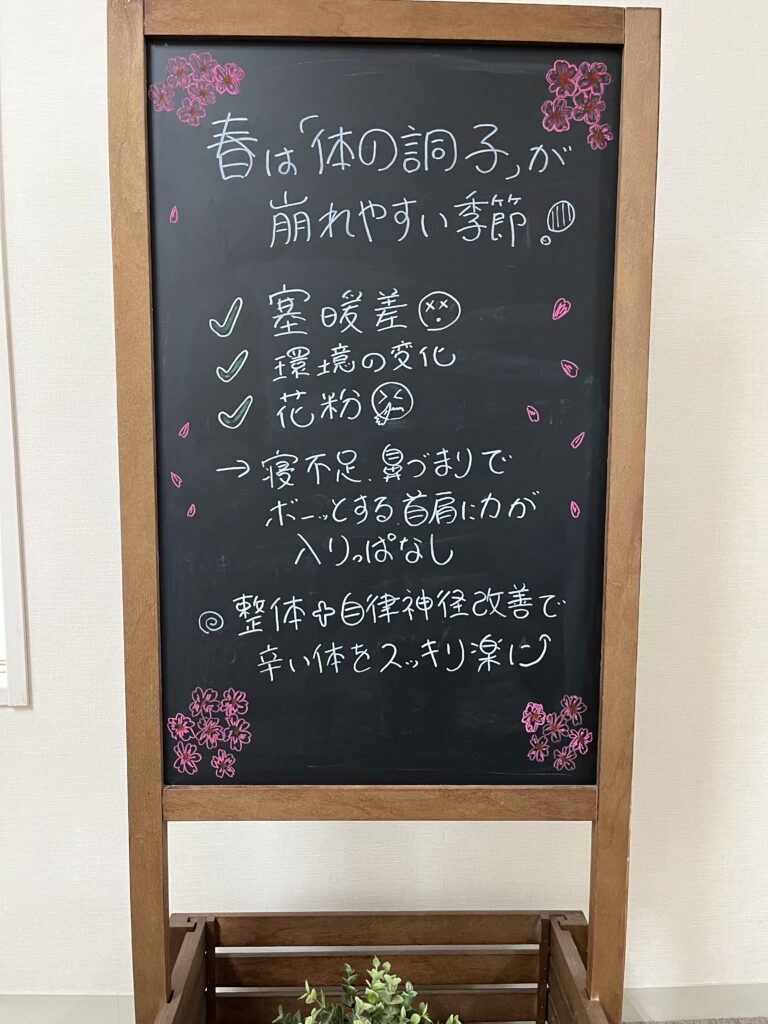 春は「体の調子」が
崩れやすい季節!
✓ 寒暖差
✓ 環境の変化
✓ 花粉
→ 寝不足、鼻づまりで
ボーッとする、首肩に力が
入りっぱなし
◎ 整体+自律神経改善で
辛い体をスッキリ楽に⤴